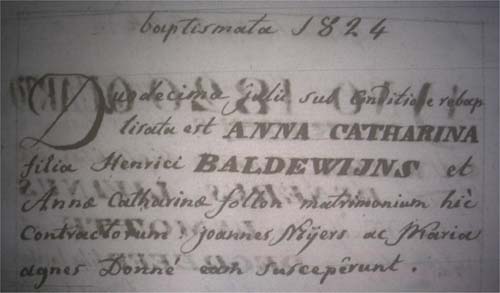 baptismata 1824
Duodecima julii sub Conditione rebap
lisata est ANNA CATHARINA
filia Henrici BALDEWIJNS et
Annæ Catharinæ follon matrimonium hìc
Contractorum joannes Meijers ac Maria
agnes Donné eam suscepêrunt.